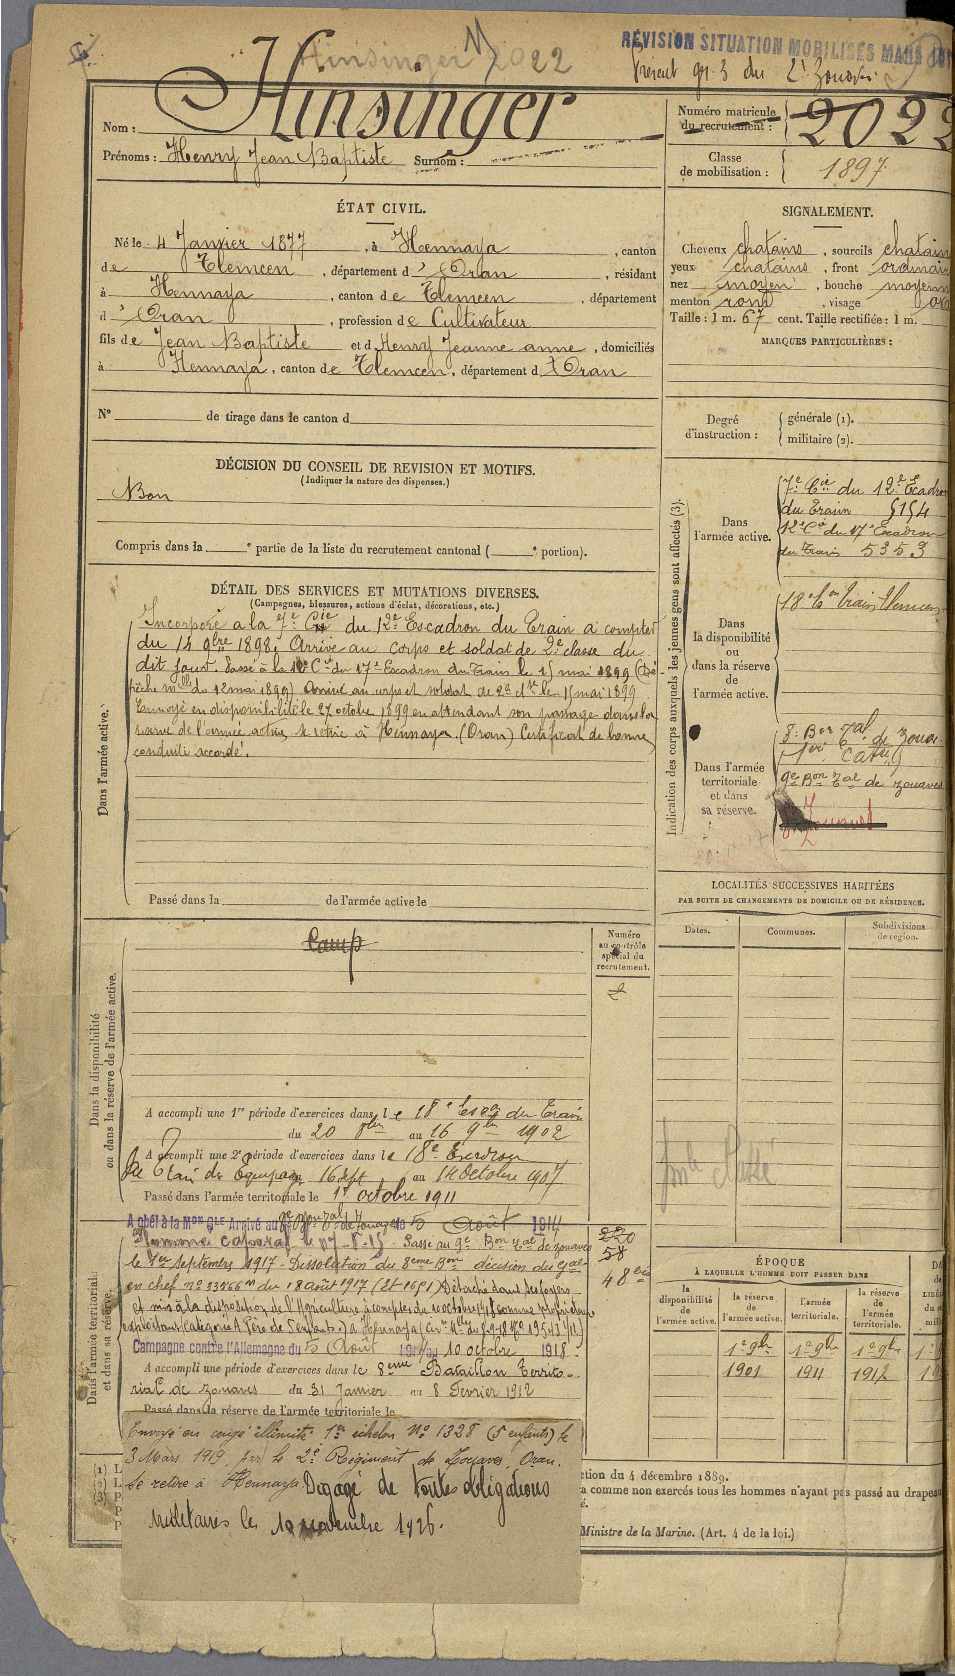 Hinsinger 2022
REVISION SITUATION MOBILISES MARS
du 2e Zouaves
Nom : Hinsinger
Numéro matricule du recrutement : 2022
Prénoms : Henry Jean Baptiste Surnom :
Classe de mobilisation : 1897
ÉTAT CIVIL.
Né le 4 Janvier 1877, à Hennaya, canton
de Tlemcen, département d'Oran, résidant
à Hennaya, canton de Tlemcen, département
d'Oran, profession de Cultivateur
fils de Jean Baptiste et d Henry Jeanne anne, domiciliés
à Hennaya, canton de Tlemcen, département d'Oran
SIGNALEMENT.
Cheveux chatains, sourcils chatain
yeux chatains, front ordinair
nez moyen, bouche moyenn
menton rond, visage
Taille : 1 m. 67 cent. Taille rectifiée : 1 m.
MARQUES PARTICULIÈRES :
N° de tirage dans le canton d
Degré d'instruction : générale (1).
militaire (2).
DÉCISION DU CONSEIL DE REVISION ET MOTIFS.
(Indiquer la nature des dispenses.)
Bon
Compris dans la e partie de la liste du recrutement cantonal ( e portion).
DÉTAIL DES SERVICES ET MUTATIONS DIVERSES.
(Campagnes, blessures, actions d'éclat, décorations, etc.)
Dans l'armée active.
Incorporé à la 7e Cie du 12e Escadron du Train à compter
du 14 9bre 1898. Arrivé au corps et soldat de 2e classe du
dit jour. Passé à la 12e Cie du 17e Escadron du Train le 15 mai 1899 (Dé-
pêche mlle du 12 mai 1899) Arrivé au corps et soldat de 2e cl. le 15 mai 1899
Envoyé en disponibilité le 27 octobre 1899 en attendant son passage dans la
réserve de l'armée active, se retire à Hennaya (Oran) Certificat de bonne
conduite accordé.
Passé dans la de l'armée active le
Indication des corps auxquels les jeunes gens sont affectés (3).
Dans l'armée active.
7e Cie du 12e Escadron
du Train 5154
12e Cie du 17e Escadron
du Train 5353
Dans la disponibilité ou dans la réserve de l'armée active.
18e Train Tlemcen
Dans l'armée territoriale et dans sa réserve.
8e Bon Tal de Zouav
9e Bon Tal de zouaves
LOCALITÉS SUCCESSIVES HABITÉES
PAR SUITE DE CHANGEMENTS DE DOMICILE OU DE RÉSIDENCE.
Dates. Communes. Subdivisions de région.
Dans la disponibilité ou dans la réserve de l'armée active.
Camp
Numéro au contrôle spécial du recrutement.
A accompli une 1re période d'exercices dans le 18e Escon du Train
du 20 8bre au 16 9bre 1902
A accompli une 2e période d'exercices dans le 18e Escadron
du Train des Equipages 16 Sept au 14 Octobre 1907
Passé dans l'armée territoriale le 1er octobre 1911
Dans l'armée territoriale et dans sa réserve.
A obéi à la MON GLE Arrivé au 8e Bon Tal de zouaves le 5 Août 1914
Nommé caporal le 17-8-15 - Passé au 9e Bon Tal de zouaves
le 1er Septembre 1917 - Dissolution du 8eme Bon décision du Gal
en chef n° 33766 m du 18 août 1917 Détaché dans ses foyers
et mis à la disposition de l'Agriculture à compter du 10 octobre 1918 comme propriétaire
exploitant Catégorie A Père de 5 enfants) à Hennaya
Campagne contre l'Allemagne du 5 Août 1914 au 10 octobre 1918
220
58
48
A accompli une période d'exercices dans le 8eme Bataillon Territo-
rial de zouaves du 31 Janvier au 8 Fevrier 1912
Passé dans la réserve de l'armée territoriale le
Envoyé en congé illimité 1er échelon No 1328 (5 enfants) le
3 Mars 1919, par le 2e Régiment de Zouaves, Oran.
Se retire à Hennaya. Dégagé de toutes obligations
militaires le 10 novembre 1926.
ÉPOQUE
À LAQUELLE L'HOMME DOIT PASSER DANS
la disponibilité de l'armée active.
la réserve de l'armée active.
l'armée territoriale.
la réserve de l'armée territoriale.
1er 9bre 1er 9bre 1er 9bre
1901 1911 1912
ction du 4 décembre 1889.
comme non exercés tous les hommes n'ayant pas passé au drapeau
Ministre de la Marine. (Art. 4 de la loi.)